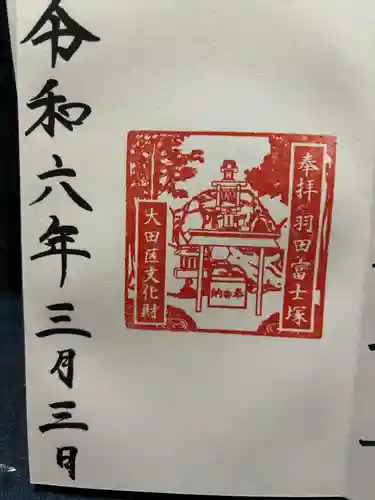 奉拝 羽田富士塚
大田区文化財
奉納
令和六年三月三日